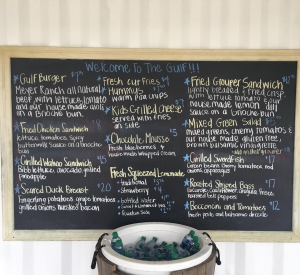 Welcome To The Gulf!!!
Gulf Burger
Meyer Ranch all natural
beef with lettuce, tomato
and our house made aioli
in a Brioche bun.
Fried Chicken Sandwich
lettuce, tomatoes, spicy
sauce on a brioche
bun
Grilled Wahoo Sandwich $15
Bibb lettuce, avocado, grilled
pineapple
Seared Duck Breast $20
fingerling potatoes, grape tomatoes,
grilled onions, bacon
Fresh cut fries
Hummus
warm pita chips
Kids Grilled cheese
served with fries
on side
Chocolate Mousse $5
fresh blueberries &
house made whipped cream
Fresh Squeezed Lemonade
- traditional $4
- strawberry
bottled water
Fried Grouper Sandwich
lightly breaded & fried crisp
with lettuce tomato & our
house made lemon dill
sauce on a brioche bun
Mixed Green Salad
mixed greens, cherry tomatoes &
our house made gluten free
brown balsamic vinaigrette
Grilled Swordfish $17
Roasted Striped Bass $17
Bocconcini and Tomatoes $12
fresh pesto and balsamic drizzle